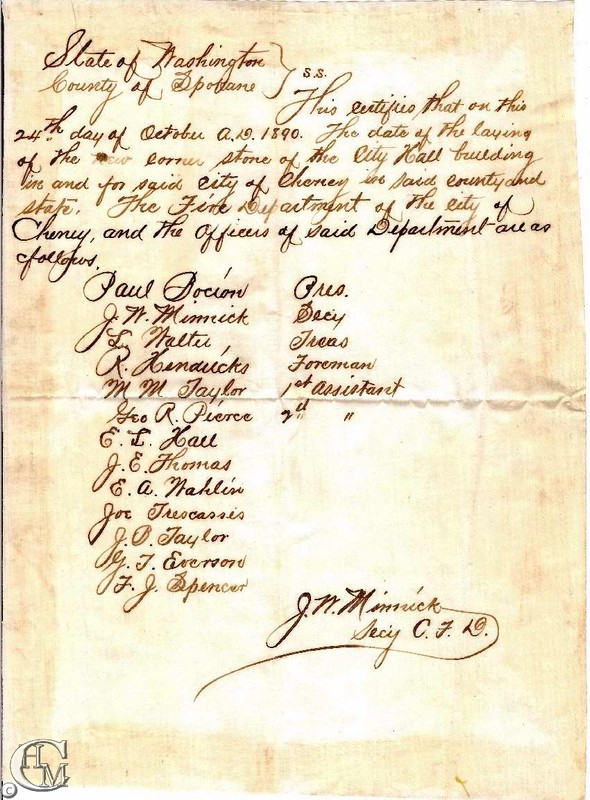 State of Washington } s.s.
County of Spokane
This certifies that on this
24th day of October A.D. 1890. The date of the laying
of the corner stone of the City Hall building
in and for said city of Cheney in said county and
state. The Fire Department of the city of
Cheney, and the Officers of said Department are as
follows.
Paul Bocion Pres.
J. W. Minnick Secy
L. Walter, Treas
R. Hendricks Foreman
M M Taylor 1st Assistant
Geo R. Pierce 2d "
E. L. Hall
J. E. Thomas
E. A. Wahlin
Joe Trescasses
J. P. Taylor
G. T. Everson
F. J. Spencer
J. W. Minnick
Secy C. F. D.